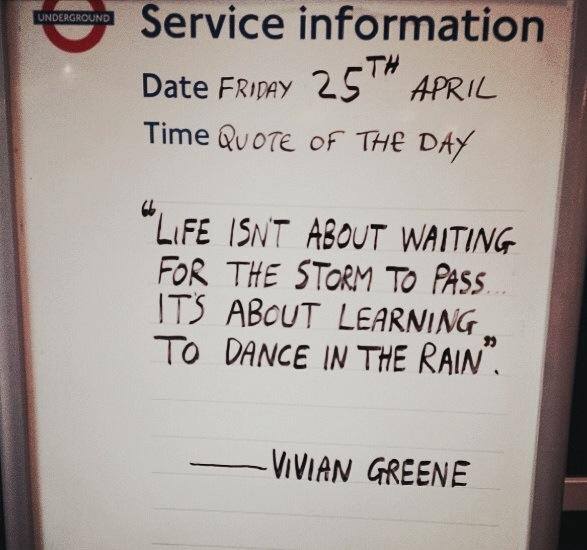 UNDERGROUND
Service information
Date FRIDAY 25TH APRIL
Time QUOTE OF THE DAY
“LIFE ISN'T ABOUT WAITING
FOR THE STORM TO PASS...
IT'S ABOUT LEARNING
TO DANCE IN THE RAIN”.
—VIVIAN GREENE